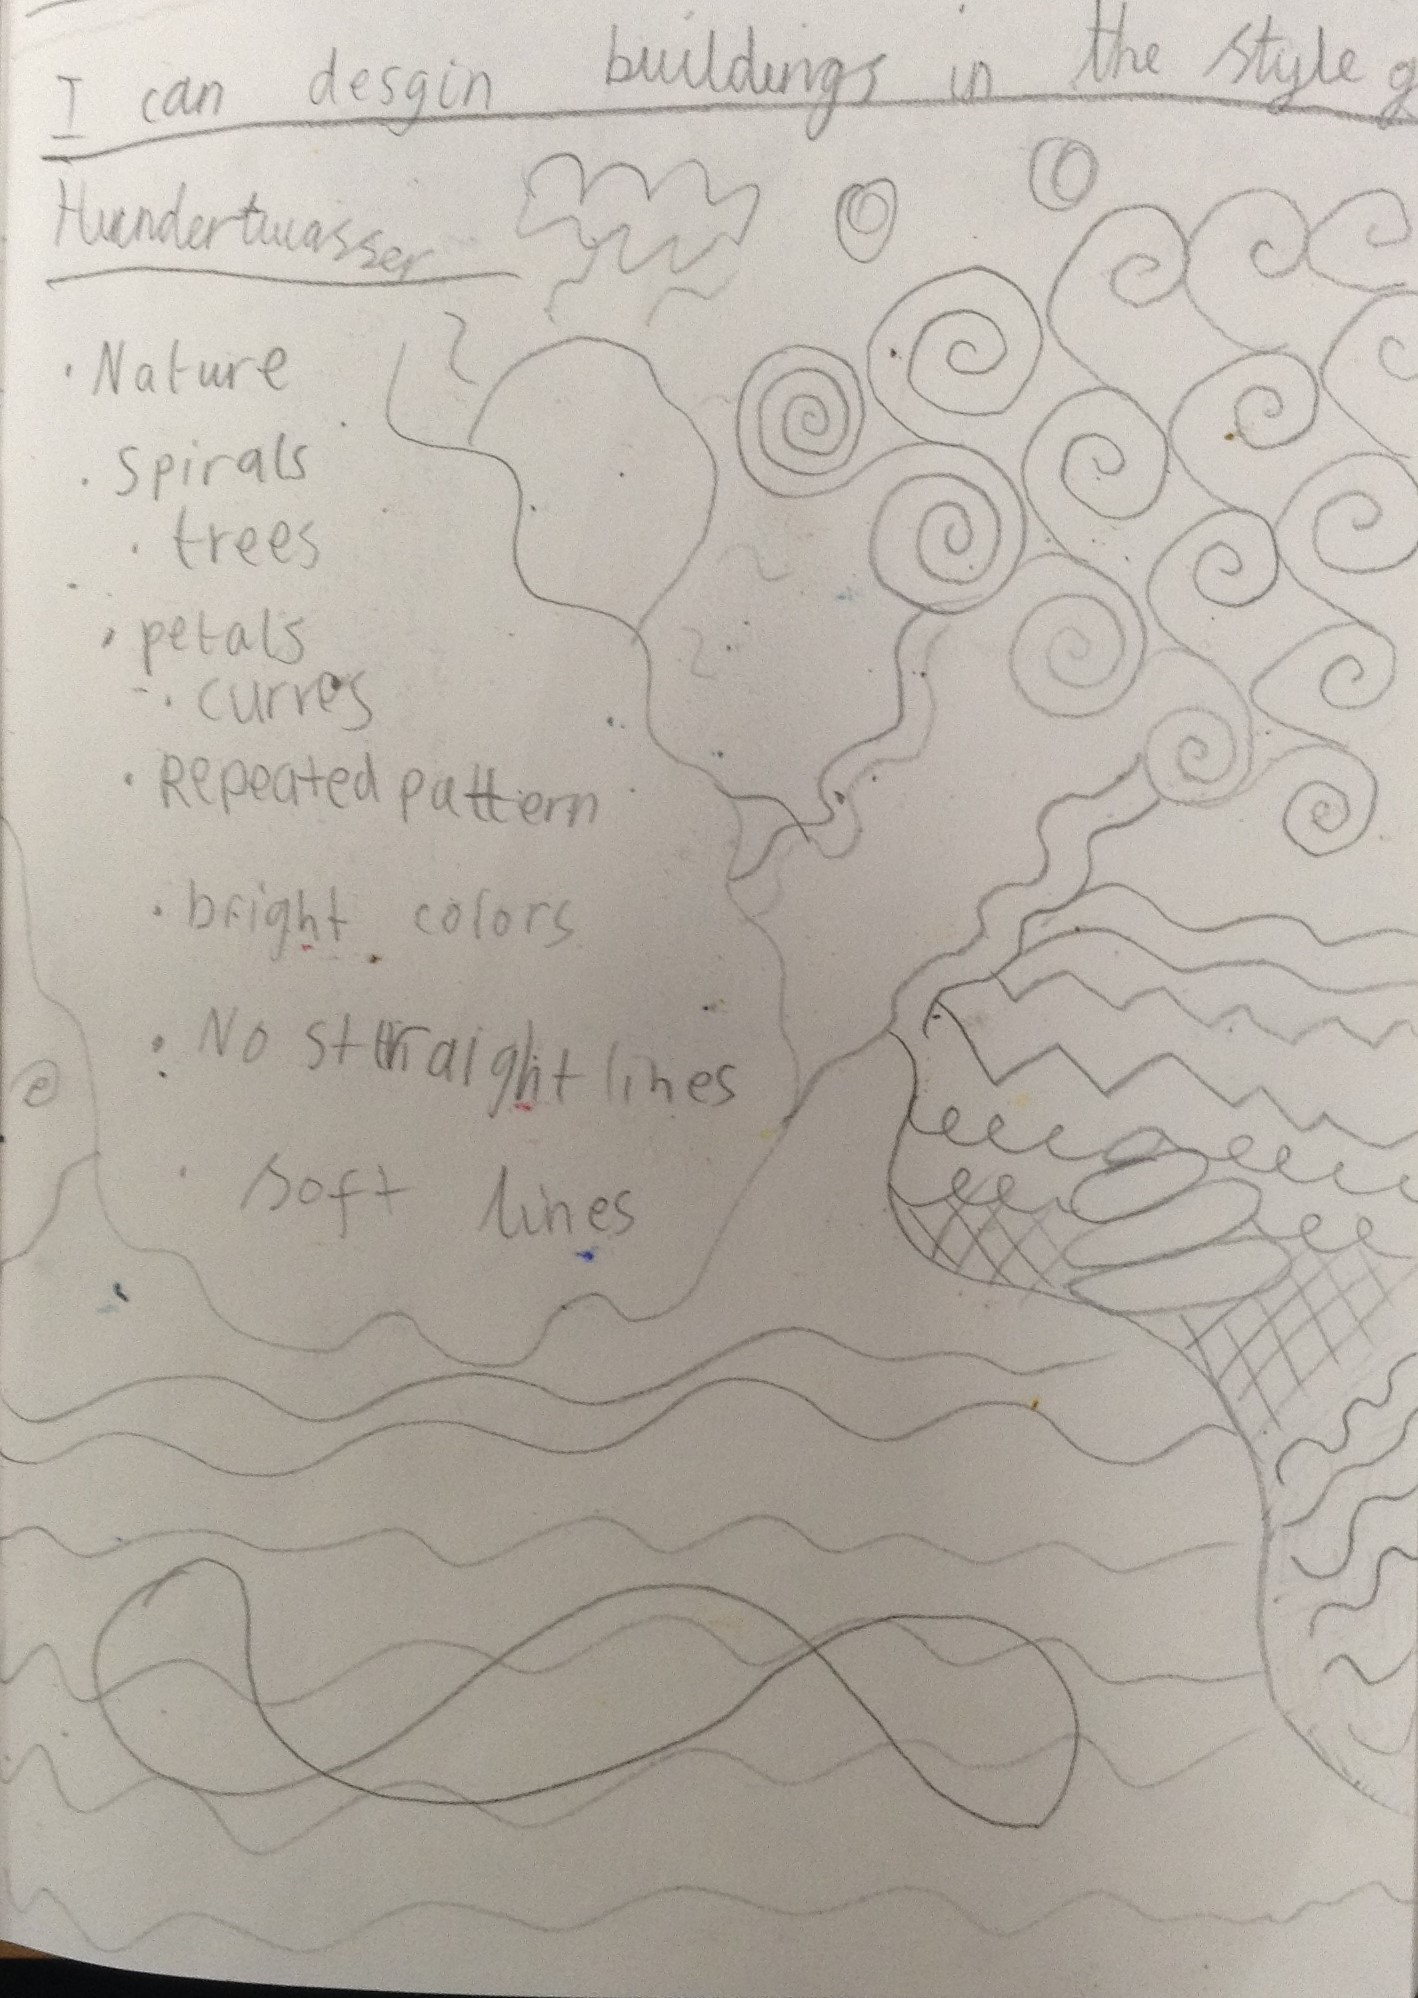 I can desgin buildings in the style
Hundertwasser
• Nature
• spirals
• trees
• petals
• curves
• Repeated pattern
• bright colors
• No straight lines
• soft lines